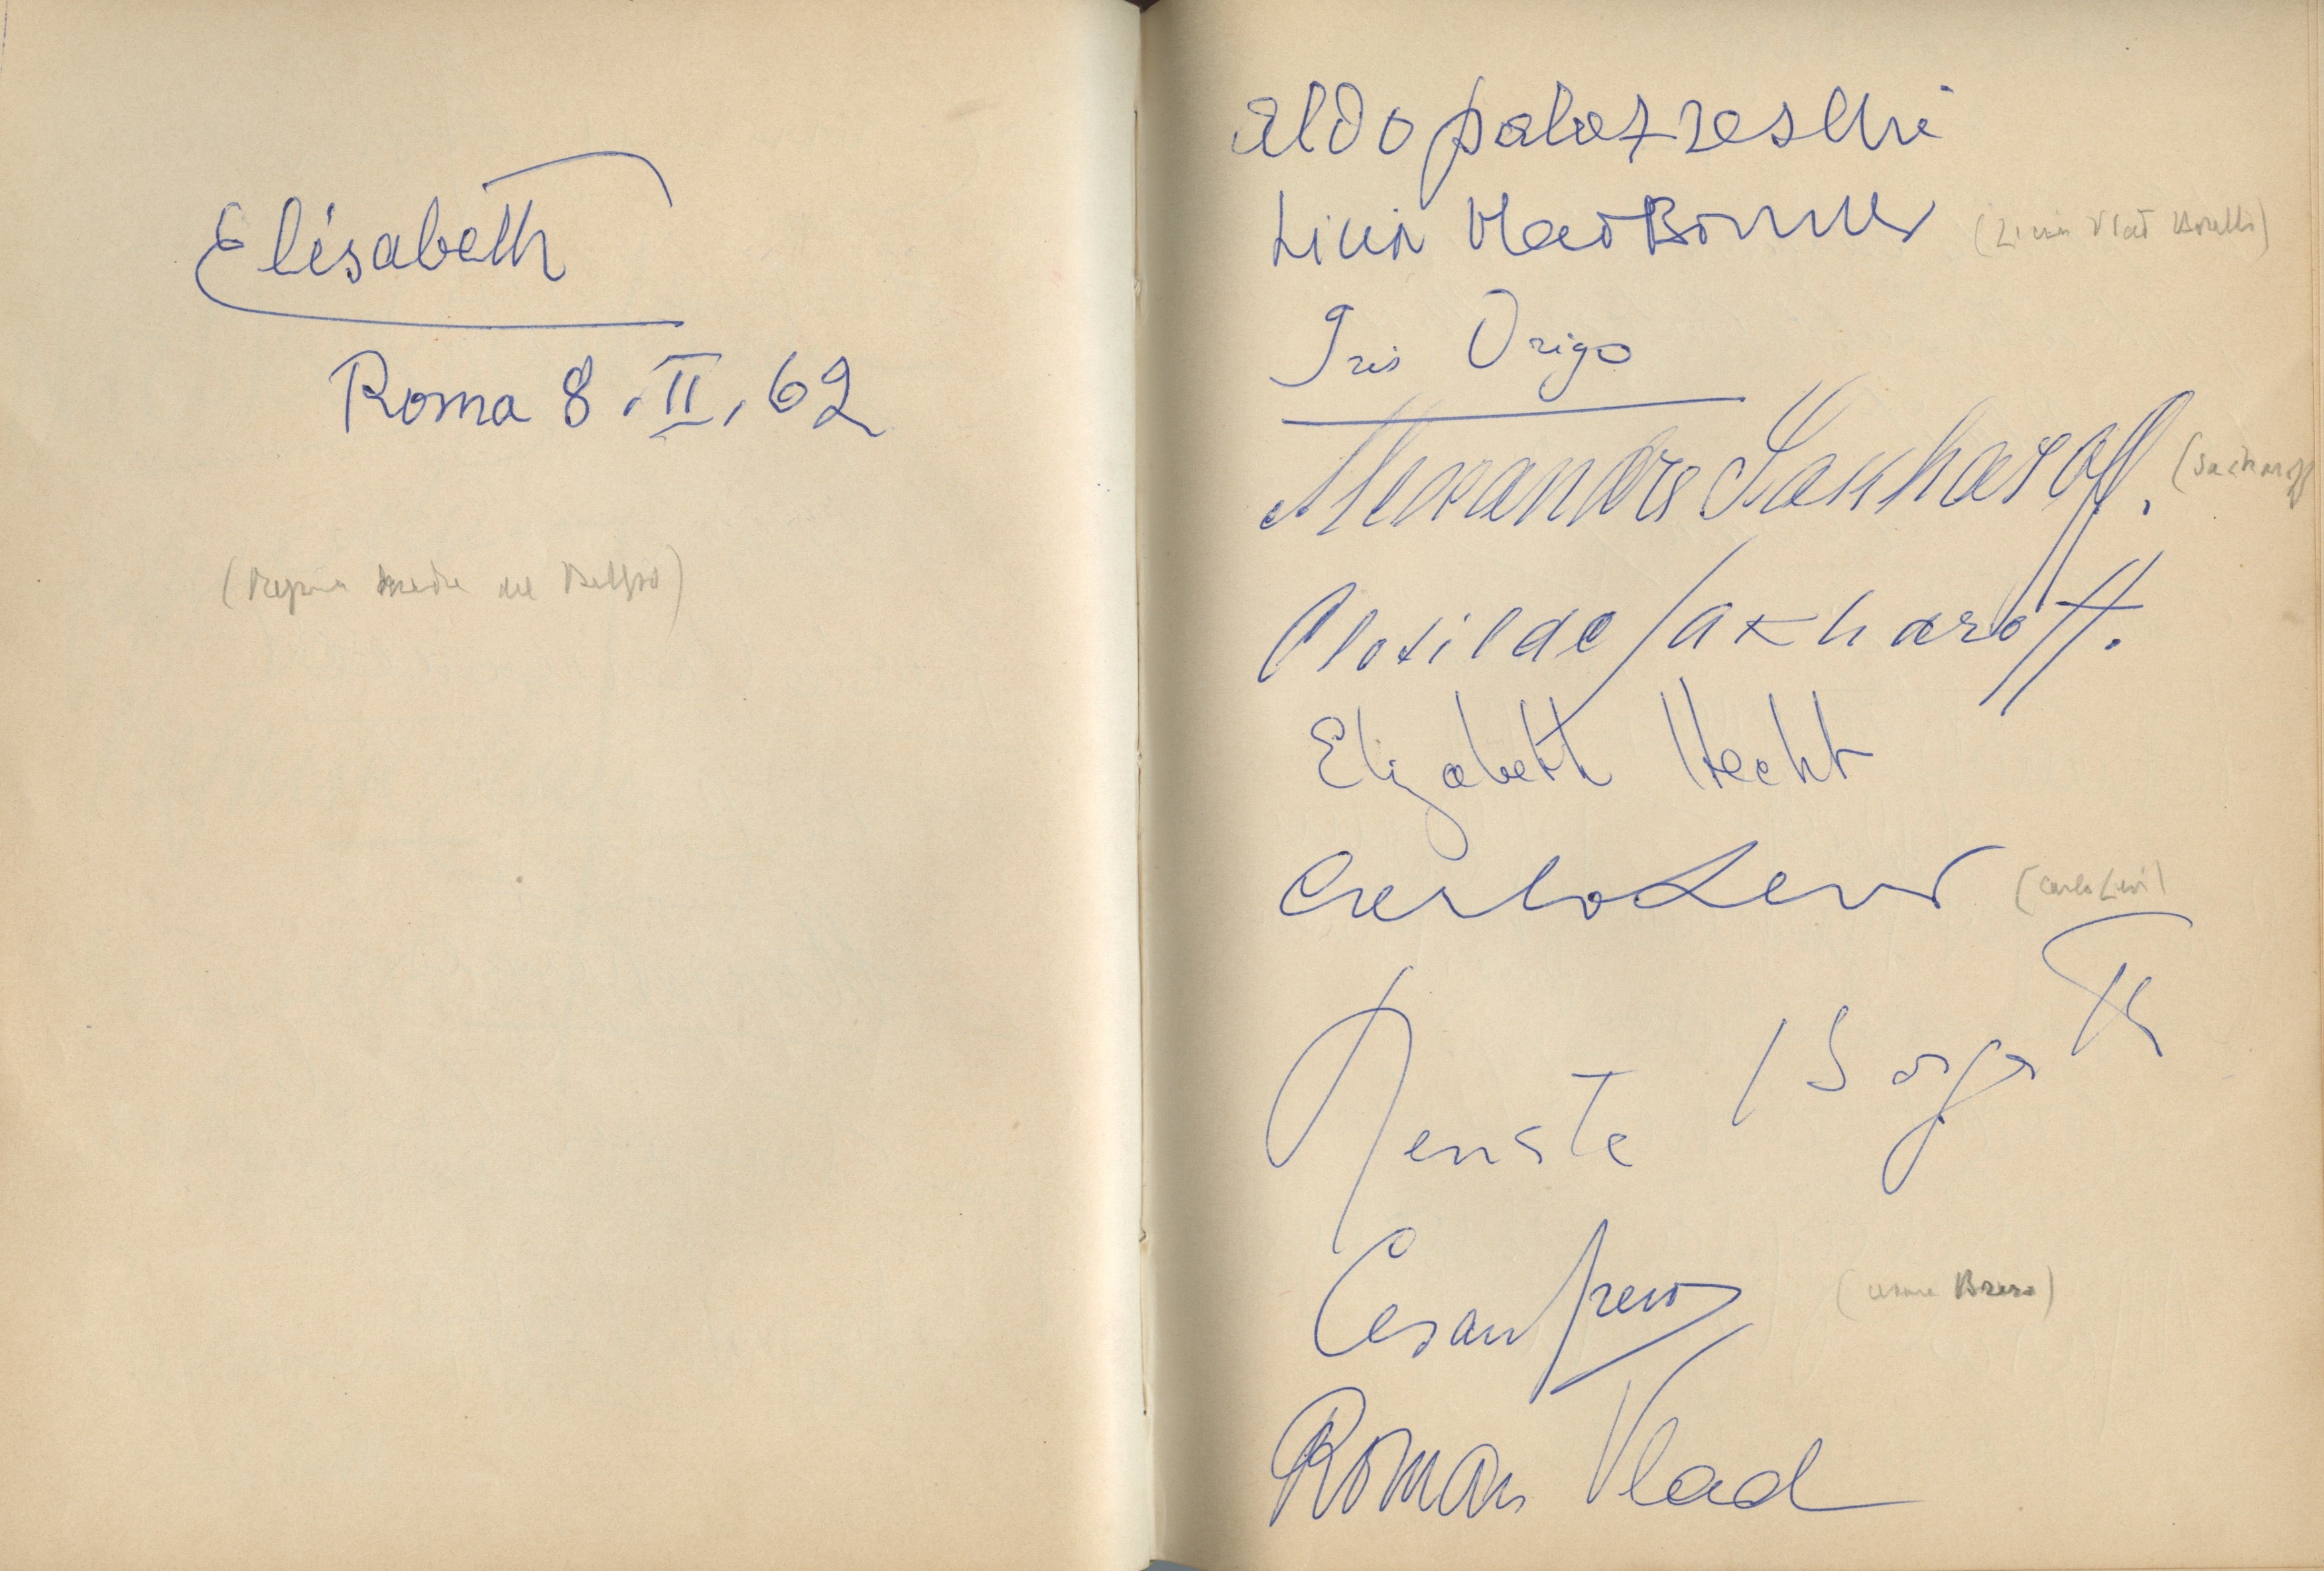 Elisabeth
Roma 8.II.62
(Regina madre del Belgio)
aldo palazzeschi
Licia Vlad Borrelli (Licia Vlad Borelli)
Iris Origo
Alexandre Sakharoff. (Sacharoff
Clotilde Sakharoff.
Elizabeth Hecht
Carlo Levi (Carlo Levi)
Renata Borgatti
Cesare Brero (Cesare Brero)
Roman Vlad